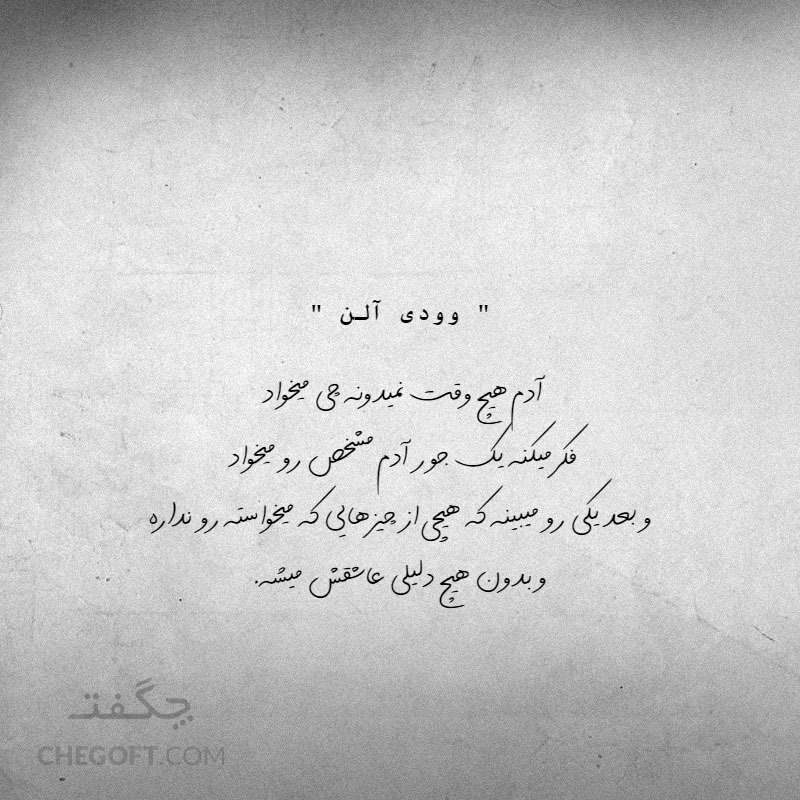 " وودی آلـن "
آدم هیچ وقت نمیدونه چی میخواد
فکر میکنه یک جور آدم مشخص رو میخواد
و بعد یکی رو میبینه که هیچی از چیزهایی که میخواسته رو نداره
و بدون هیچ دلیلی عاشقش میشه.
چگفت
CHEGOFT.COM